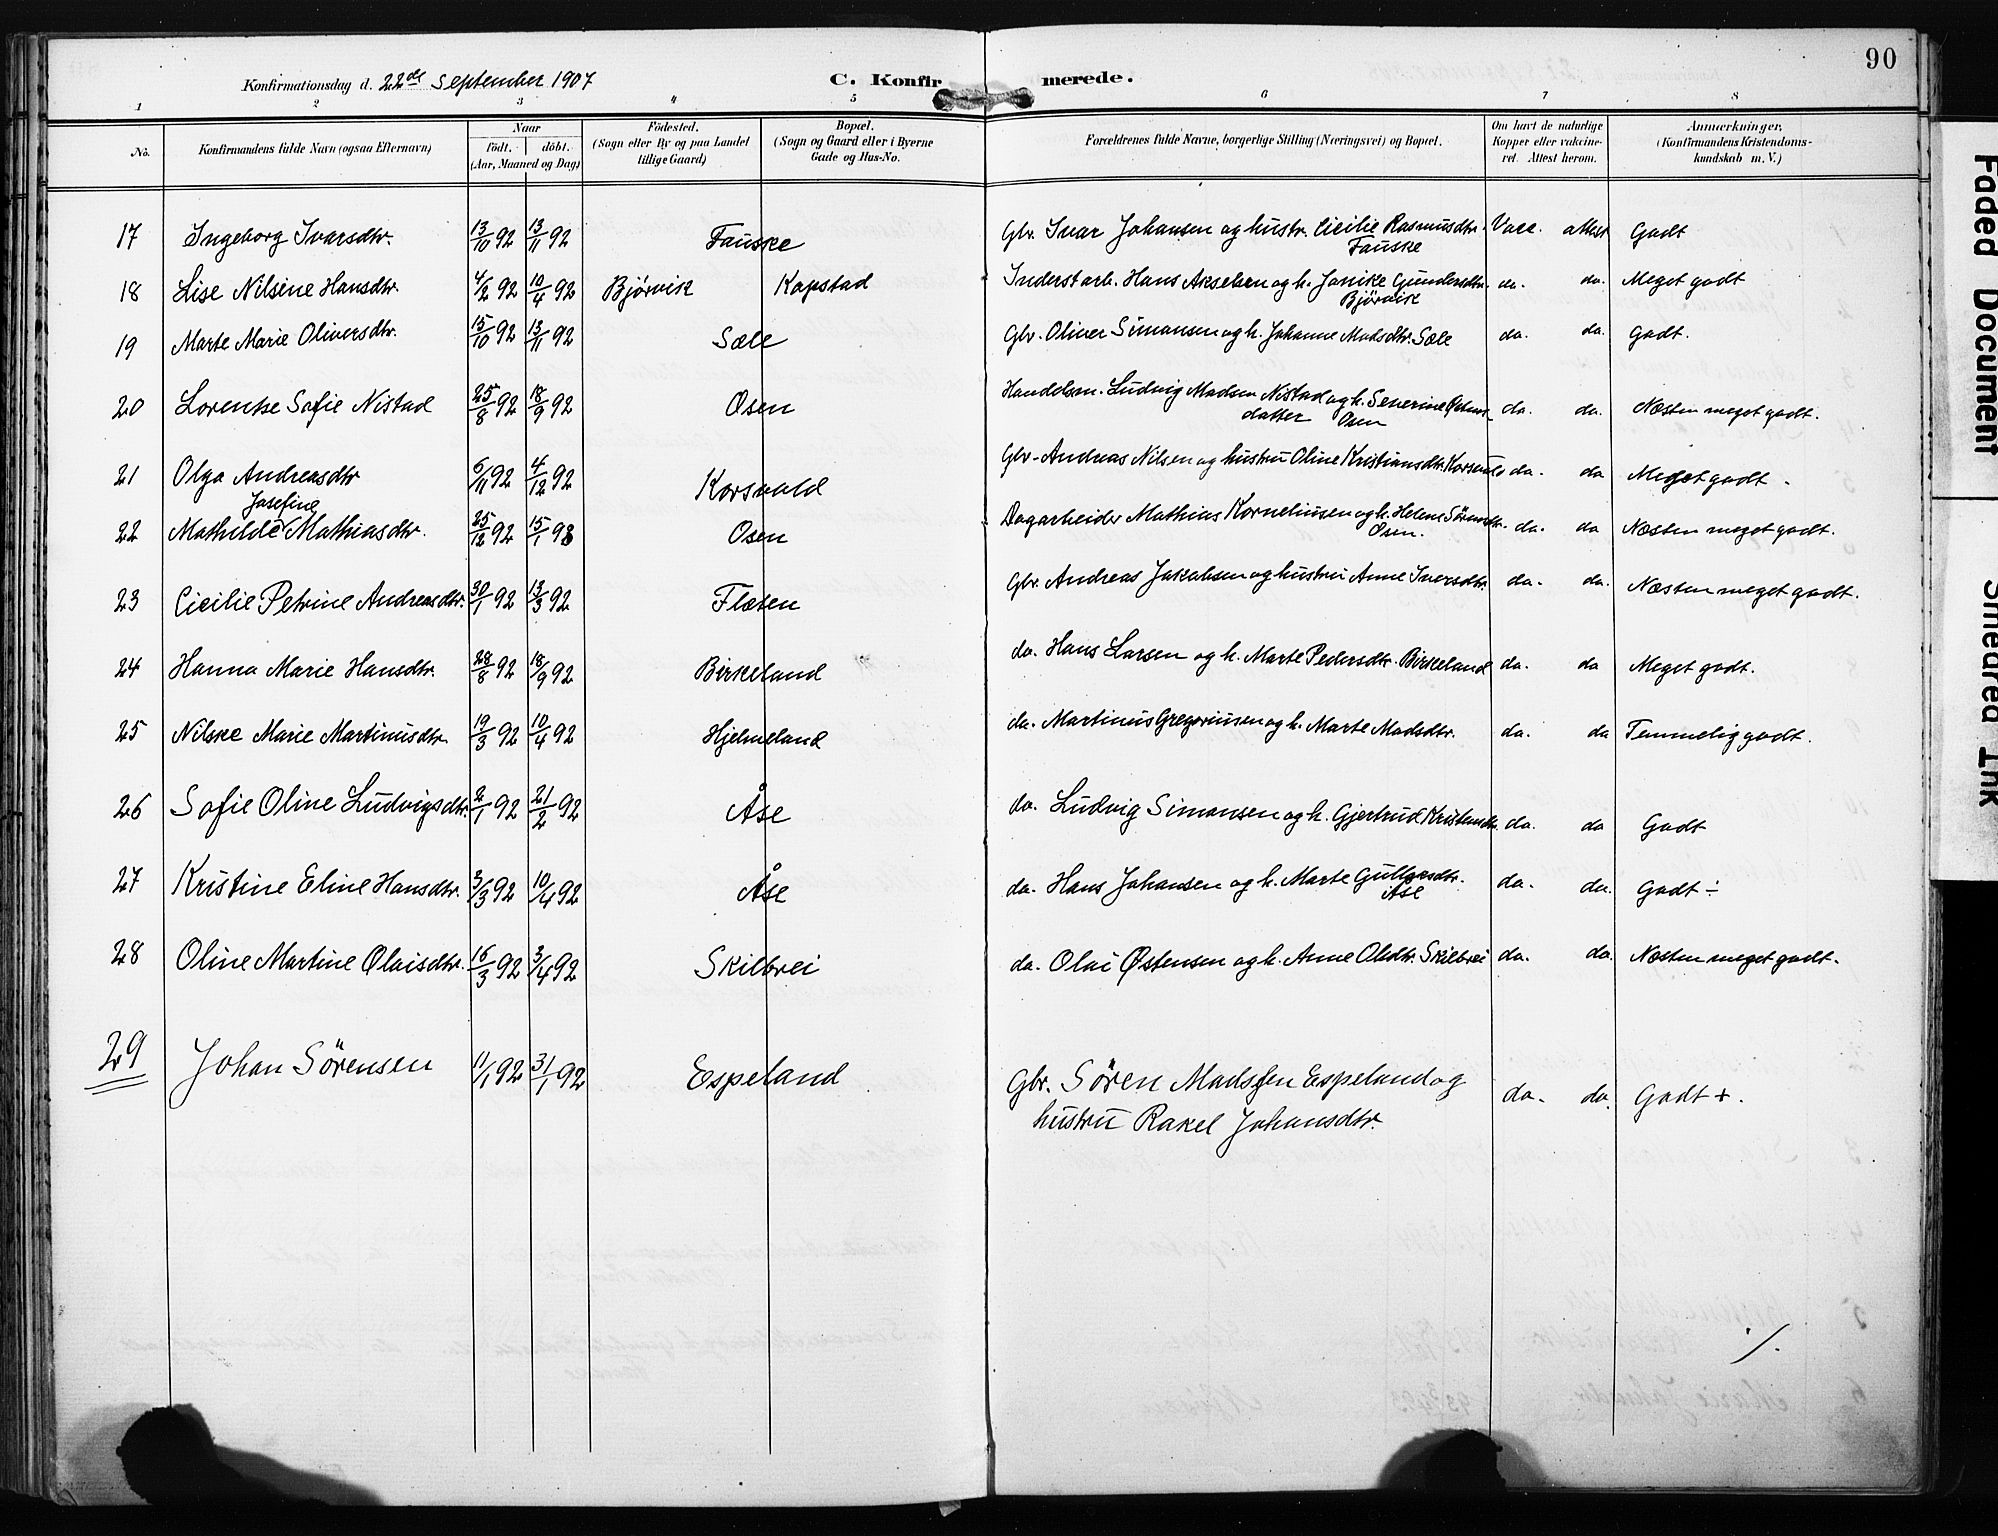 90
Konfirmationsdag d. 22de September 1907 C. Konfirmerede.
1 2 3 4 5 6 7 8
No. Konfirmandens fulde Navn (ogsaa Efternavn) Naar födt. döbt. (Aar, Maaned og Dag) Födested. (Sogn eller By og paa Landet tillige Gaard) Bopæl. (Sogn og Gaard eller i Byerne Gade og Hus-No. Forældrenes fulde Navne, borgerlige Stilling (Næringsvei) og Bopæl. Om havt de naturlige Kopper eller vakcineret. Attest herom. Anmærkninger, (Konfirmandens Kristendomskundskab m. V.)
17 Ingeborg Ivarsdtr. 13/10 92 13/11 92 Fauske Gbr. Ivar Johansen og hustr. Cicilie Rasmusdtr. Vacc. attest Godt
Fauske
18 Lise Nilsine Hansdtr. 4/2 92 10/4 92 Bjørvik Kapstad Inderstarb. Hans Akselsen og h. Janike Gundersdtr. da. da. Meget godt
Bjørvik
19 Marte Marie Oliversdtr. 15/10 92 13/11 92 Sæle Gbr. Oliver Simonsen og h. Johanne Madsdtr. Sæle da. da. Godt.
20 Lorentse Sofie Nistad 25/8 92 18/9 92 Osen Handelsm. Ludvig Madsen Nistad og h. Severine Peters- da. da. Næsten meget godt.
datter Osen
21 Olga Andreasdtr 6/11 92 4/12 92 Korsvold Gbr. Andreas Nilsen og hustru Oline Kristiansdtr. da. da Meget godt.
Josefine
22 Mathilde Mathiasdtr. 25/12 92 15/1 93 Osen Dagarbeider Mathias Korneliussen og h. Helene Sørensdtr. da. da Næsten meget godt.
Osen.
23 Cicilie Petrine Andreasdtr. 30/1 92 13/3 92 Flæten Gbr. Andreas Jakobsen og hustru Anne Iversdtr. da. da. Næsten meget godt.
24 Hanna Marie Hansdtr. 28/8 92 18/9 92 Birkeland do. Hans Larsen og h. Marte Pedersdtr. Birkeland da. da Meget godt.
25 Nilske Marie Martinusdtr. 19/3 92 10/4 92 Hjelmeland do. Martinus Gregoriusen og h. Marte Madsdtr. da. da Temmelig godt.
26 Sofie Oline Ludvigsdtr. 2/1 92 21/2 92 Åse do. Ludvig Simonsen og h. Gjertrud Kristensdtr. da. da Godt
27 Kristine Eline Hansdtr. 3/3 92 10/4 92 Åse do. Hans Johansen og h. Marte da. da. Godt ÷
Åse
28 Oline Martine Olaisdtr. 16/3 92 3/4 92 Skilbrei do. Olai Østensen og h. Anne Olsdtr. Skilbrei da. da. Næsten meget godt.
29 Johan Sörensen 11/1 92 31/1 92 Espeland Gbr. Sören Madssen Espeland og da. da. Godt +.
hustru Rakel Johansdtr.
./.
Faded Document
Smeared Ink